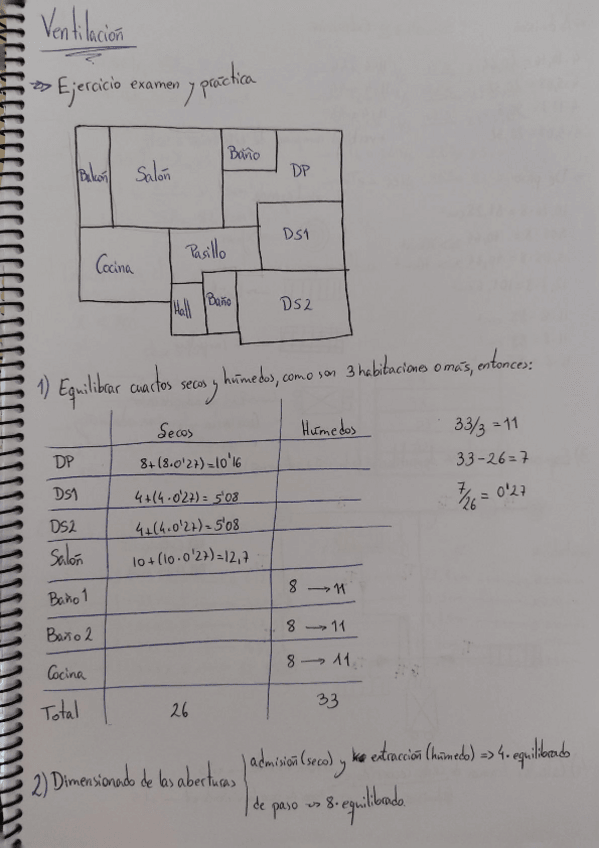 Ventilación
=>> Ejercicio examen y práctica
Balcón
Salón
Baño
DP
DS1
Cocina
Pasillo
Hall
Baño
DS2
1) Equilibrar cuartos secos y húmedos, como son 3 habitaciones o más, entonces:
Secos Húmedos
DP 8+(8·0'27)=10'16
DS1 4+(4·0'27)=5'08
DS2 4+(4·0'27)=5'08
Salón 10+(10·0'27)=12,7
Baño 1 8 → 11
Baño 2 8 → 11
Cocina 8 → 11
Total 26 33
33/3 = 11
33-26 = 7
7/26 = 0'27
2) Dimensionado de las aberturas
admisión (seco) y extracción (húmedo) => 4·equilibrado
de paso => 8·equilibrado.